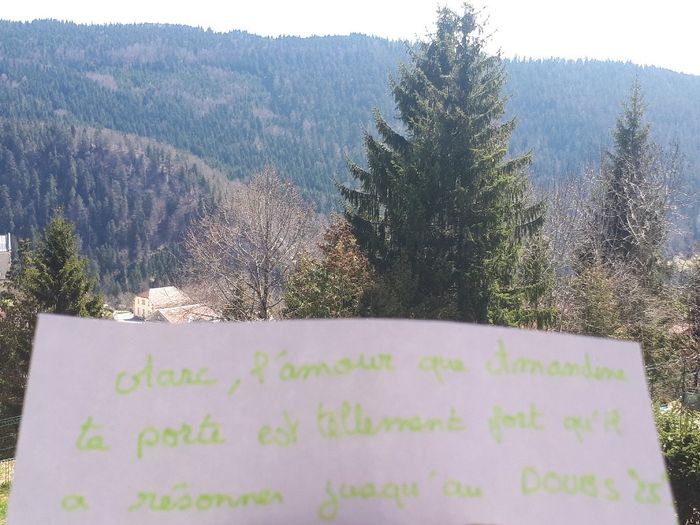 Marc, l'amour que Amandine
te porte est tellement fort qu'il
a résonner jusqu'au DOUBS "25"